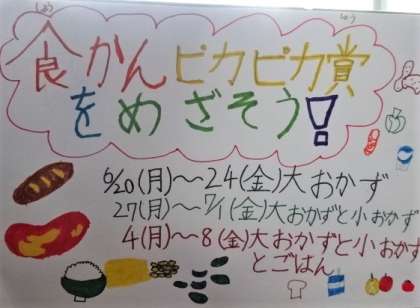 しょく しょう
食かんピカピカ賞
をめざそう!
6/20(月)〜24(金)大おかず
27(月)〜7/1(金)大おかずと小おかず
4(月)〜8(金)大おかずと小おかず
とごはん